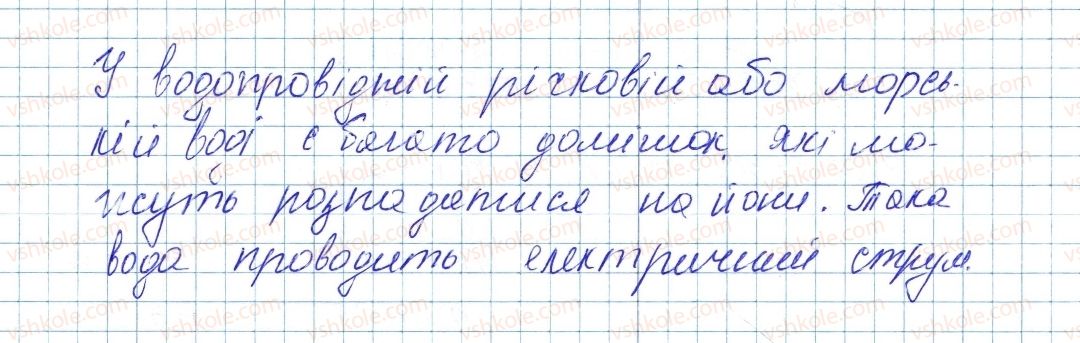 У водопровідній річковій або морсь-
кій воді є багато домішок, які мо-
жуть розпадатися на йони. Така
вода проводить електричний струм.